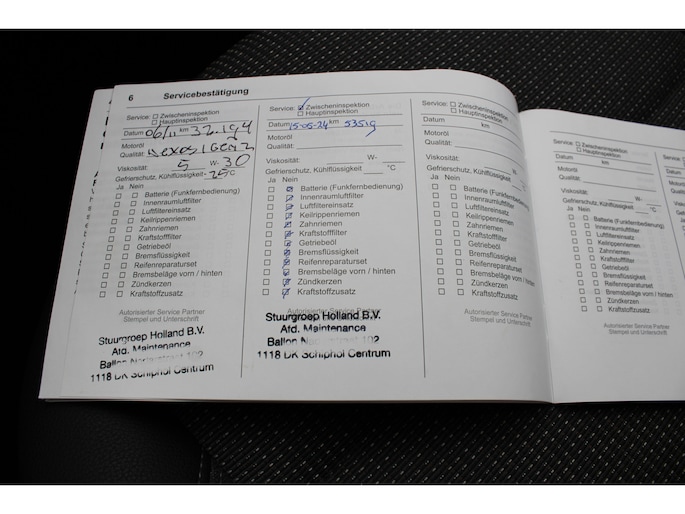 6 Servicebestätigung
Service: Zwischeninspektion
Hauptinspektion
Datum 06/11 km 32.194
Motoröl
Qualität: Dexos 1 GEN 2
Viskosität: 5 W- 30
Gefrierschutz, Kühlflüssigkeit -25 °C
Ja Nein
Batterie (Funkfernbedienung)
Innenraumluftfilter
Luftfiltereinsatz
Keilrippenriemen
Zahnriemen
Kraftstofffilter
Getriebeöl
Bremsflüssigkeit
Reifenreparaturset
Bremsbeläge vorn / hinten
Zündkerzen
Kraftstoffzusatz
Autorisierter Service Partner
Stempel und Unterschrift
Stuurgroep Holland B.V.
Afd. Maintenance
1118 DK Schiphol Centrum
Service: Zwischeninspektion
Hauptinspektion
Datum 15-05-24 km 53519
Motoröl
Qualität:
Viskosität: W-
Gefrierschutz, Kühlflüssigkeit °C
Ja Nein
Batterie (Funkfernbedienung)
Innenraumluftfilter
Luftfiltereinsatz
Keilrippenriemen
Zahnriemen
Kraftstofffilter
Getriebeöl
Bremsflüssigkeit
Reifenreparaturset
Bremsbeläge vorn / hinten
Zündkerzen
Kraftstoffzusatz
Stuurgroep Holland B.V.
Afd. Maintenance
1118 DK Schiphol Centrum
Service: Zwischeninspektion
Hauptinspektion
Datum km
Motoröl
Qualität:
Viskosität: W-
Gefrierschutz, Kühlflüssigkeit °C
Ja Nein
Batterie (Funkfernbedienung)
Innenraumluftfilter
Luftfiltereinsatz
Keilrippenriemen
Zahnriemen
Kraftstofffilter
Getriebeöl
Bremsflüssigkeit
Reifenreparaturset
Bremsbeläge vorn / hinten
Zündkerzen
Kraftstoffzusatz
Autorisierter Service Partner
Stempel und Unterschrift
Service: Zwischeninspektion
Hauptinspektion
Datum km
Motoröl
Qualität:
Viskosität: W-
Gefrierschutz, Kühlflüssigkeit °C
Ja Nein
Batterie (Funkfernbedienung)
Innenraumluftfilter
Luftfiltereinsatz
Keilrippenriemen
Zahnriemen
Kraftstofffilter
Getriebeöl
Bremsflüssigkeit
Reifenreparaturset
Bremsbeläge vorn / hinten
Zündkerzen
Kraftstoffzusatz
Autorisierter Service Partner
Stempel und Unterschrift